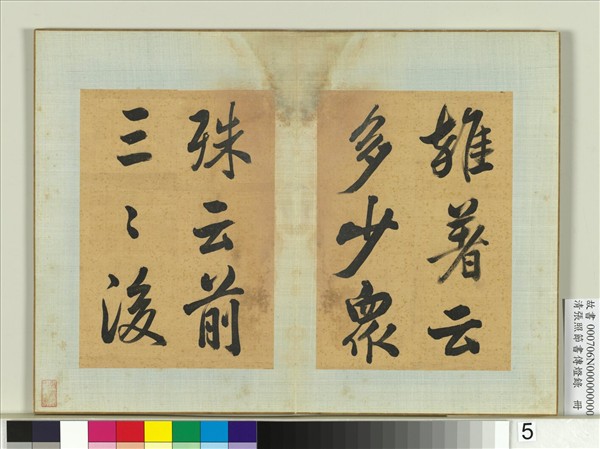 雜著云
多少衆
殊云前
三〻後
故書 000706N000000000
清張照節書傳燈錄 冊
5